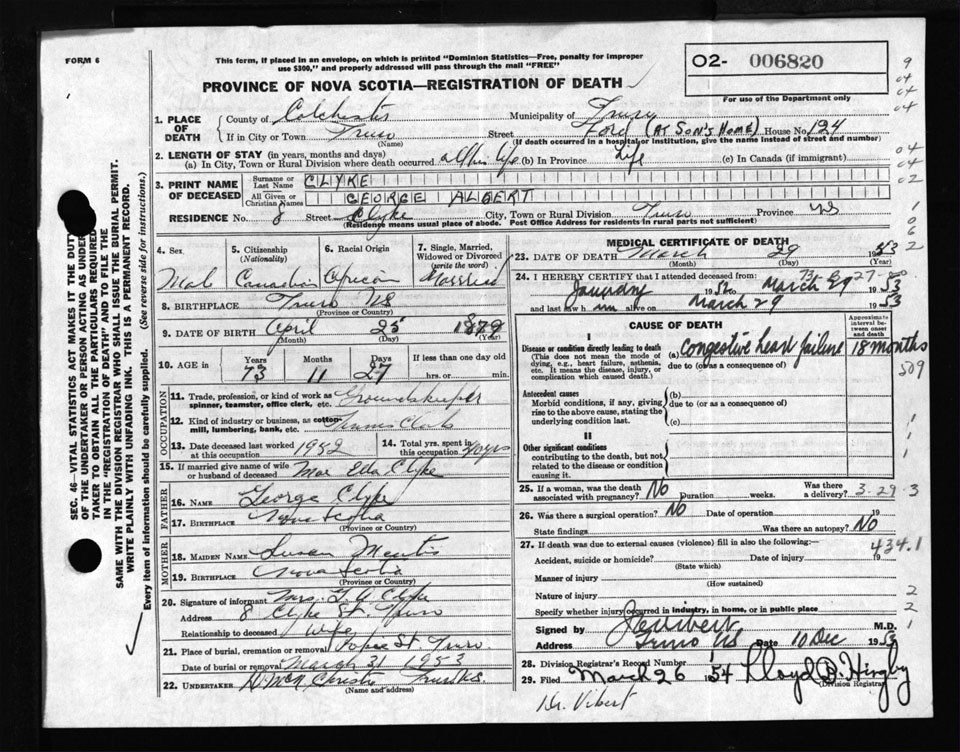 FORM 6
This form, if placed in an envelope, on which is printed "Dominion Statistics—Free, penalty for improper
use $300," and properly addressed will pass through the mail "FREE"
O2- 006820
For use of the Department only
PROVINCE OF NOVA SCOTIA—REGISTRATION OF DEATH
1. PLACE OF DEATH
County of Colchester Municipality of Truro
If in City or Town Truro Street Ford (AT SON'S HOME) House No. 124
(Name) (If death occurred in a hospital or institution, give the name instead of street and number)
2. LENGTH OF STAY (in years, months and days)
(a) In City, Town or Rural Division where death occurred all his life (b) In Province Life (c) In Canada (if immigrant)
3. PRINT NAME OF DECEASED
Surname or Last Name CLYKE
All Given or Christian Names GEORGE ALBERT
RESIDENCE No. 8 Street Clyke City, Town or Rural Division Truro Province NS
(Residence means usual place of abode. Post Office Address for Residents in rural parts not sufficient)
4. Sex
5. Citizenship (Nationality)
6. Racial Origin
7. Single, Married, Widowed or Divorced (write the word)
Male Canadian African Married
8. BIRTHPLACE Truro NS
(Province or Country)
9. DATE OF BIRTH April 25 1879
(Month) (Day) (Year)
10. AGE in Years Months Days If less than one day old
73 11 27 hrs. or min.
OCCUPATION
11. Trade, profession, or kind of work as spinner, teamster, office clerk, etc. Groundskeeper
12. Kind of industry or business, as cotton mill, lumbering, bank, etc. Tennis Club
13. Date deceased last worked at this occupation 1952
14. Total yrs. spent in this occupation yrs
15. If married give name of wife or husband of deceased Mae Eda Clyke
FATHER
16. NAME George Clyke
17. BIRTHPLACE Nova Scotia
(Province or Country)
MOTHER
18. MAIDEN NAME Susan Mentis
19. BIRTHPLACE Nova Scotia
(Province or Country)
20. Signature of informant Mrs. G A Clyke
Address 8 Clyke St. Truro
Relationship to deceased Wife
21. Place of burial, cremation or removal St. Truro
Date of burial or removal March 31 1953
22. UNDERTAKER Christie Truro NS
(Name and address)
MEDICAL CERTIFICATE OF DEATH
23. DATE OF DEATH March 29 1953
(Month) (Day) (Year)
24. I HEREBY CERTIFY that I attended deceased from:
January 1952 to March 29 1953
and last saw him alive on March 29 1953
73 27-
CAUSE OF DEATH
Approximate interval between onset and death
I
Disease or condition directly leading to death
(This does not mean the mode of dying, e.g., heart failure, asthma, etc. It means the disease, injury, or complication which caused death.)
(a) Congestive heart failure 18 months
due to (or as a consequence of)
509
Antecedent causes
Morbid conditions, if any, giving rise to the above cause, stating the underlying condition last.
(b)
due to (or as a consequence of)
(c)
II
Other significant conditions
contributing to the death, but not related to the disease or condition causing it.
25. If a woman, was the death associated with pregnancy? No Duration weeks. Was there a delivery? 3-29 3
26. Was there a surgical operation? No Date of operation 19
State findings Was there an autopsy? No
27. If death was due to external causes (violence) fill in also the following:— 434.1
Accident, suicide or homicide? Date of injury 19
(State which)
Manner of injury
(How sustained)
Nature of injury
Specify whether injury occurred in industry, in home, or in public place
Signed by Vibert M.D.
Address Truro NS Date 10 Dec 1953
28. Division Registrar's Record Number
29. Filed March 26 1954
(Division Registrar)
Dr. Vibert
SEC. 46—VITAL STATISTICS ACT MAKES IT THE DUTY
OF THE UNDERTAKER OR PERSON ACTING AS UNDER-
TAKER TO OBTAIN ALL THE PARTICULARS REQUIRED
IN THE "REGISTRATION OF DEATH" AND TO FILE THE
SAME WITH THE DIVISION REGISTRAR WHO SHALL ISSUE THE BURIAL PERMIT.
WRITE PLAINLY WITH UNFADING INK. THIS IS A PERMANENT RECORD.
Every item of information should be carefully supplied. (See reverse side for instructions.)